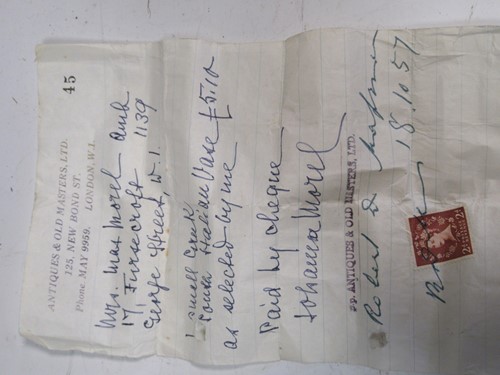 45
ANTIQUES & OLD MASTERS, LTD.
125, NEW BOND ST.
Phone MAY 9959. LONDON, W.1.
Mrs. Max Morel
17 Furzecroft
George Street, W.1. 1139
1 small Greek
South Italian Vase £5.10
as selected by me
Paid by cheque
Johanna Morel
pp. ANTIQUES & OLD MASTERS, LTD.
Robert
18.10.57